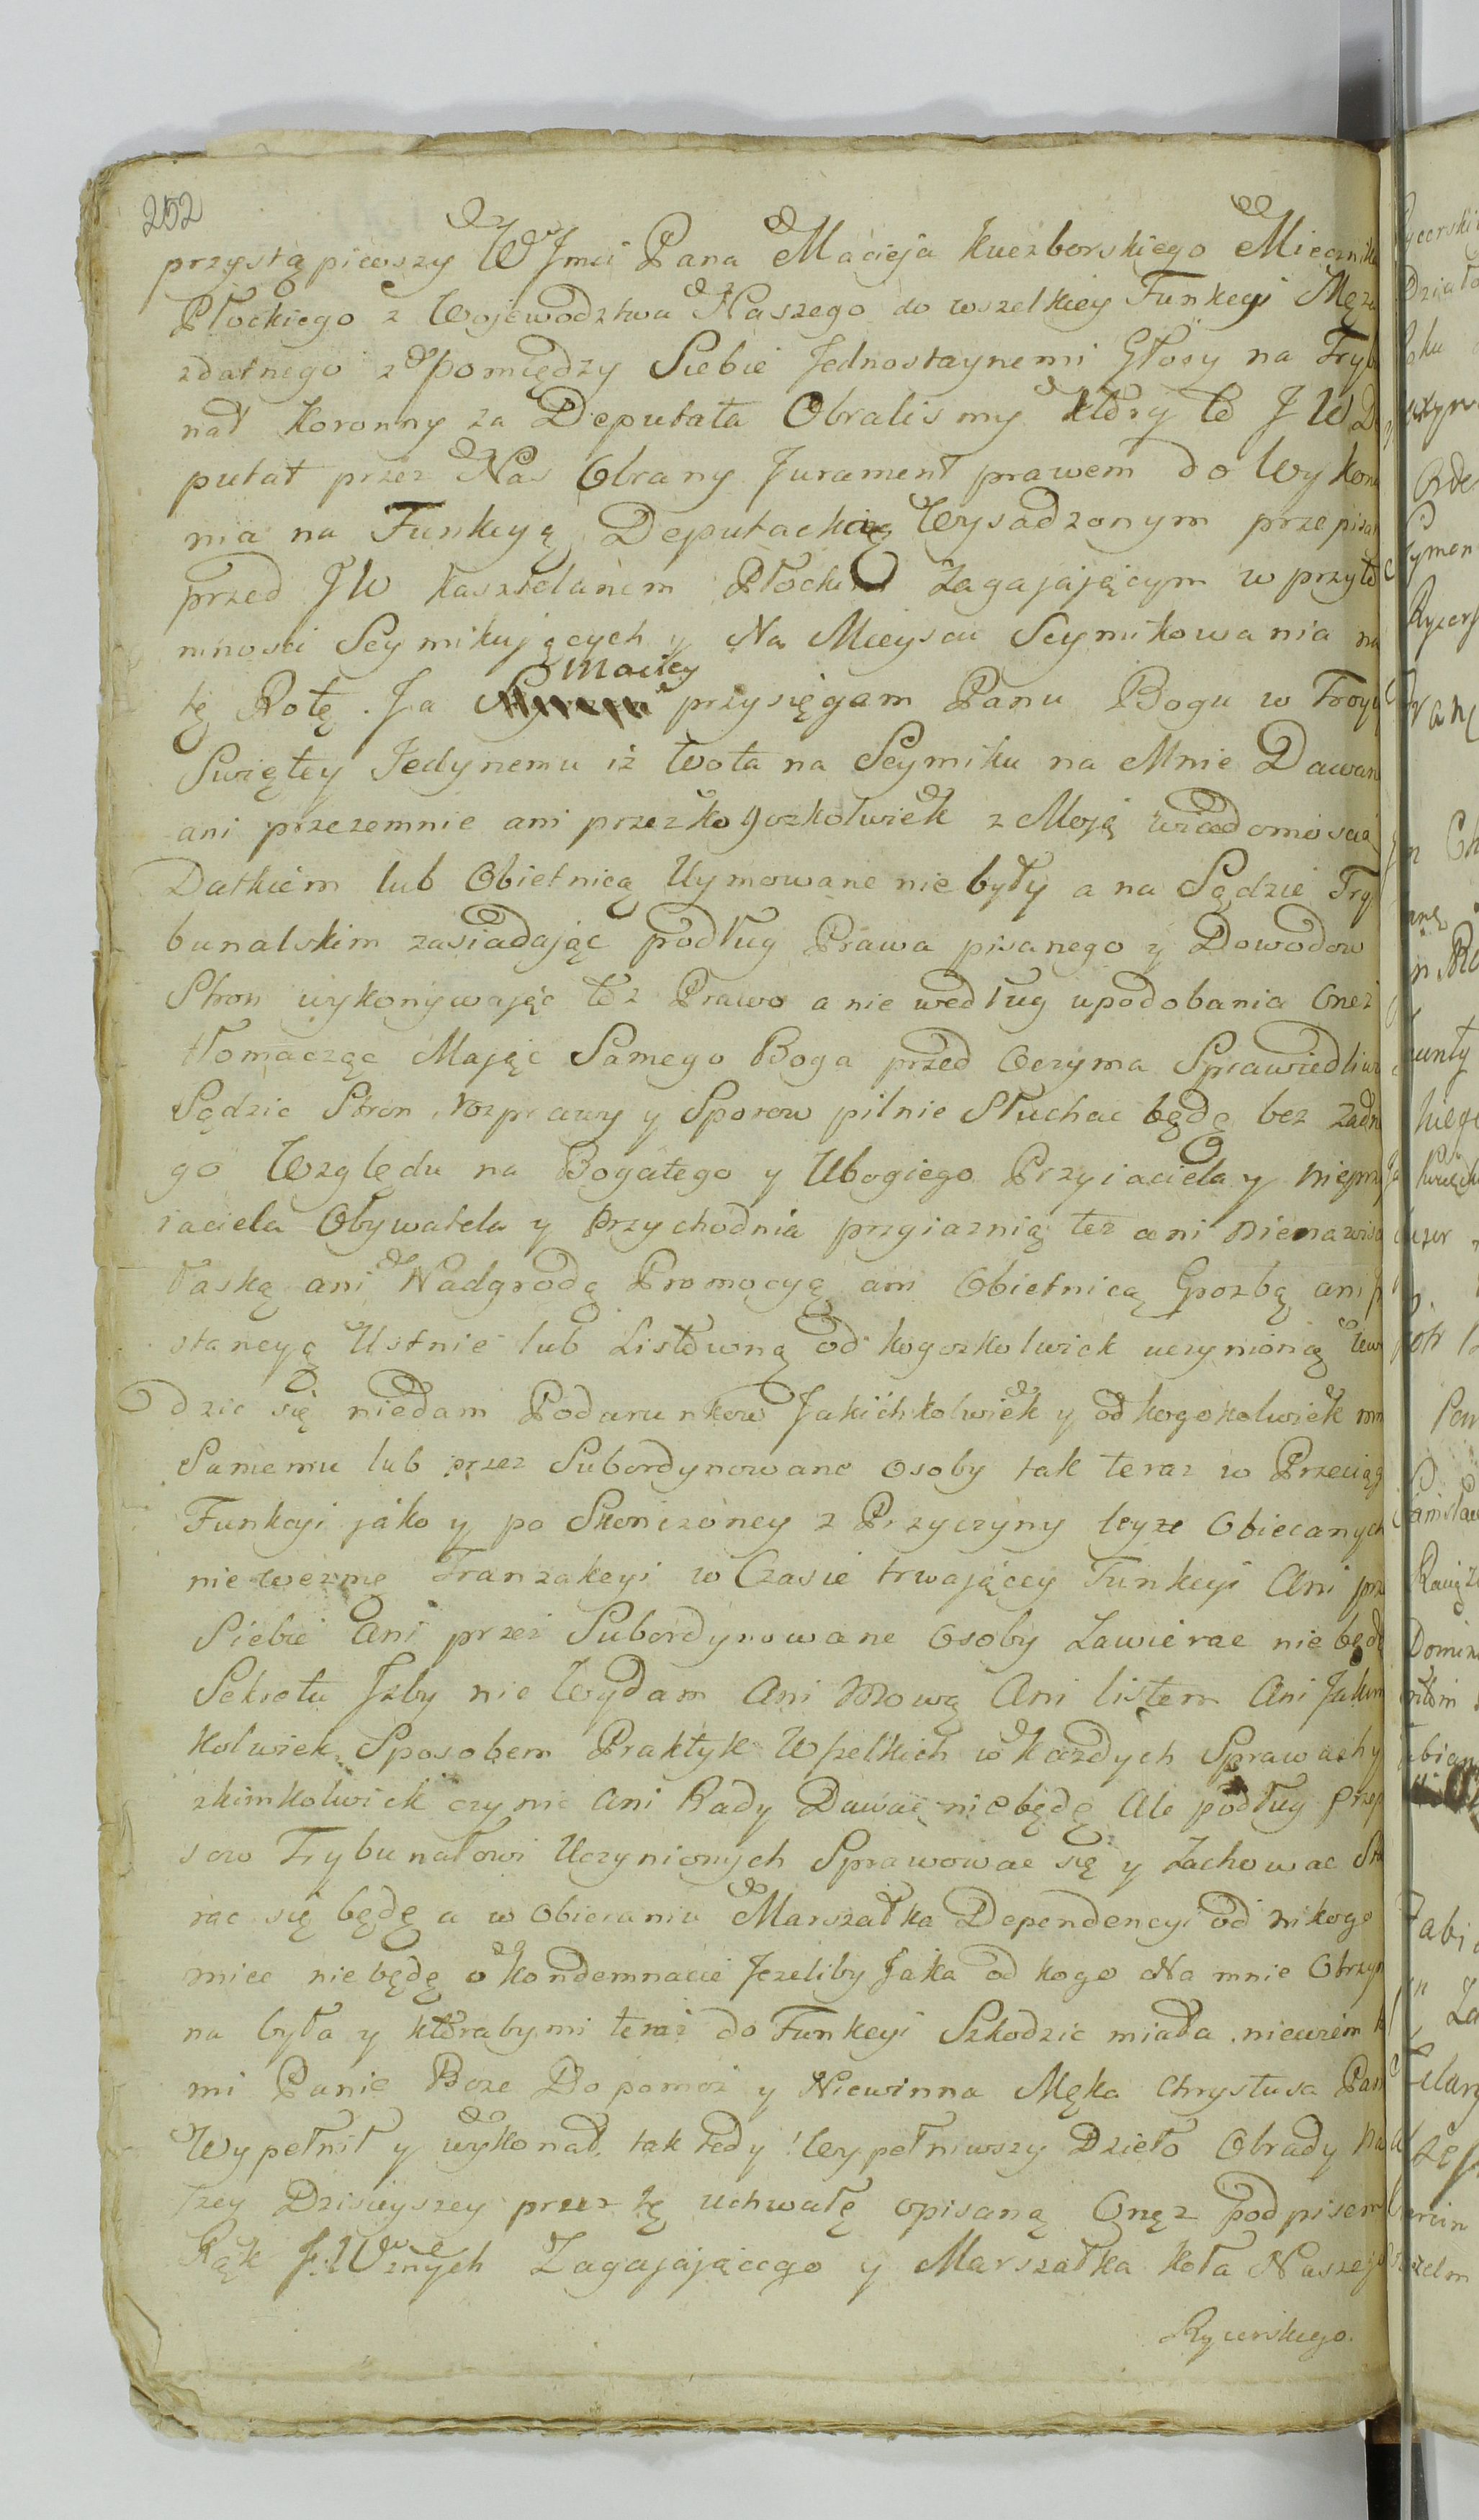 252
przystąpiwszy W Jmci Pana Macieja Kuczborskiego Miecznika
Płockiego z Wojewodztwa Naszego do wszelkiey Funkcyi Męża
zdatnego z pomiędzy Siebie Jednostaynemi Głosy na Trybu
nał Koronny za Deputata Obralismy ktory to JW De
putat przez Nas Obrany Jurament prawem do Wykona
nia na Funkcyą Deputacką Wysadzonym przepisan
przed JW Kasztelanem Płockim Zagajającym w przyto
mnosci Seymikujących y Na Mieyscu Seymikowania na
tę Rotę. Ja Maciey przysięgam Panu Bogu w Troycy
Swiętey Jedynemu iż Wota na Seymiku na Mnie Dawane
ani przezemnie ani przez kogożkolwiek z Moją wiadomoscią
Datkiem lub Obietnicą Uymowane nie były a na Sądzie Try
bunalskim zasiadając podług Prawa pisanego y Dowodow
Stron wykonywając toż Prawo a nie według upodobania Oneż
tłomacząc Mając Samego Boga przed Oczyma Sprawiedliwie
Sądzic Stron rozprawy y Sporow pilnie Słuchac będę bez żadne
go Względu na Bogatego y Ubogiego Przyiaciela y nieprzy
iaciela Obywatela y Przychodnia przyiaznią też ani nienawisc
łaską ani Nadgrodą Promocyą ani Obietnicą Grozbą ani
stancyą Ustnie lub Listowną od kogożkolwiek uczynioną Uwo
dzic się niedam Podarunkow Jakichkolwiek y od kogokolwiek mnie
Samemu lub przez Subordynowane Osoby tak teraz w Przeciąg
Funkcyi jako y po Skonczoney z Przyczyny teyże Obiecanych
niewezmę Tranzakcyi w Czasie trwającey Funkcyi Ani prz
Siebie Ani przez Subordynowane Osoby Zawierac nie będę
Sekretu Jzby nie Wydam Ani Mową Ani listem Ani Jakim
kolwiek Sposobem Praktyk Wszelkich w każdych Sprawach y
zkimkolwiek czynic Ani Rady Dawac niebędę Ale podług Przepi
sow Trybunałowi Uczynionych Sprawowac się y Zachowac Sta
rac się będę a w Obieraniu Marszałka Dependencyi od nikogo
miec niebędę o kondemnacie Jeżeliby Jaka od kogo Na mnie Otrzym
na była y ktoraby mi teraz do Funkcyi Szkodzic miała niewiem
mi Panie Boże Dopomoż y Niewinna Męka Chrystusa Pan
Wypełnił y wykonał, tak tedy Wypełniwszy Dzieło Obrady Na
szey Dzisieyszey przez tę uchwałę opisaną Onęż podpisem
Rąk J. Wznych Zagajającego y Marszałka Koła Naszego
Rycerskiego.